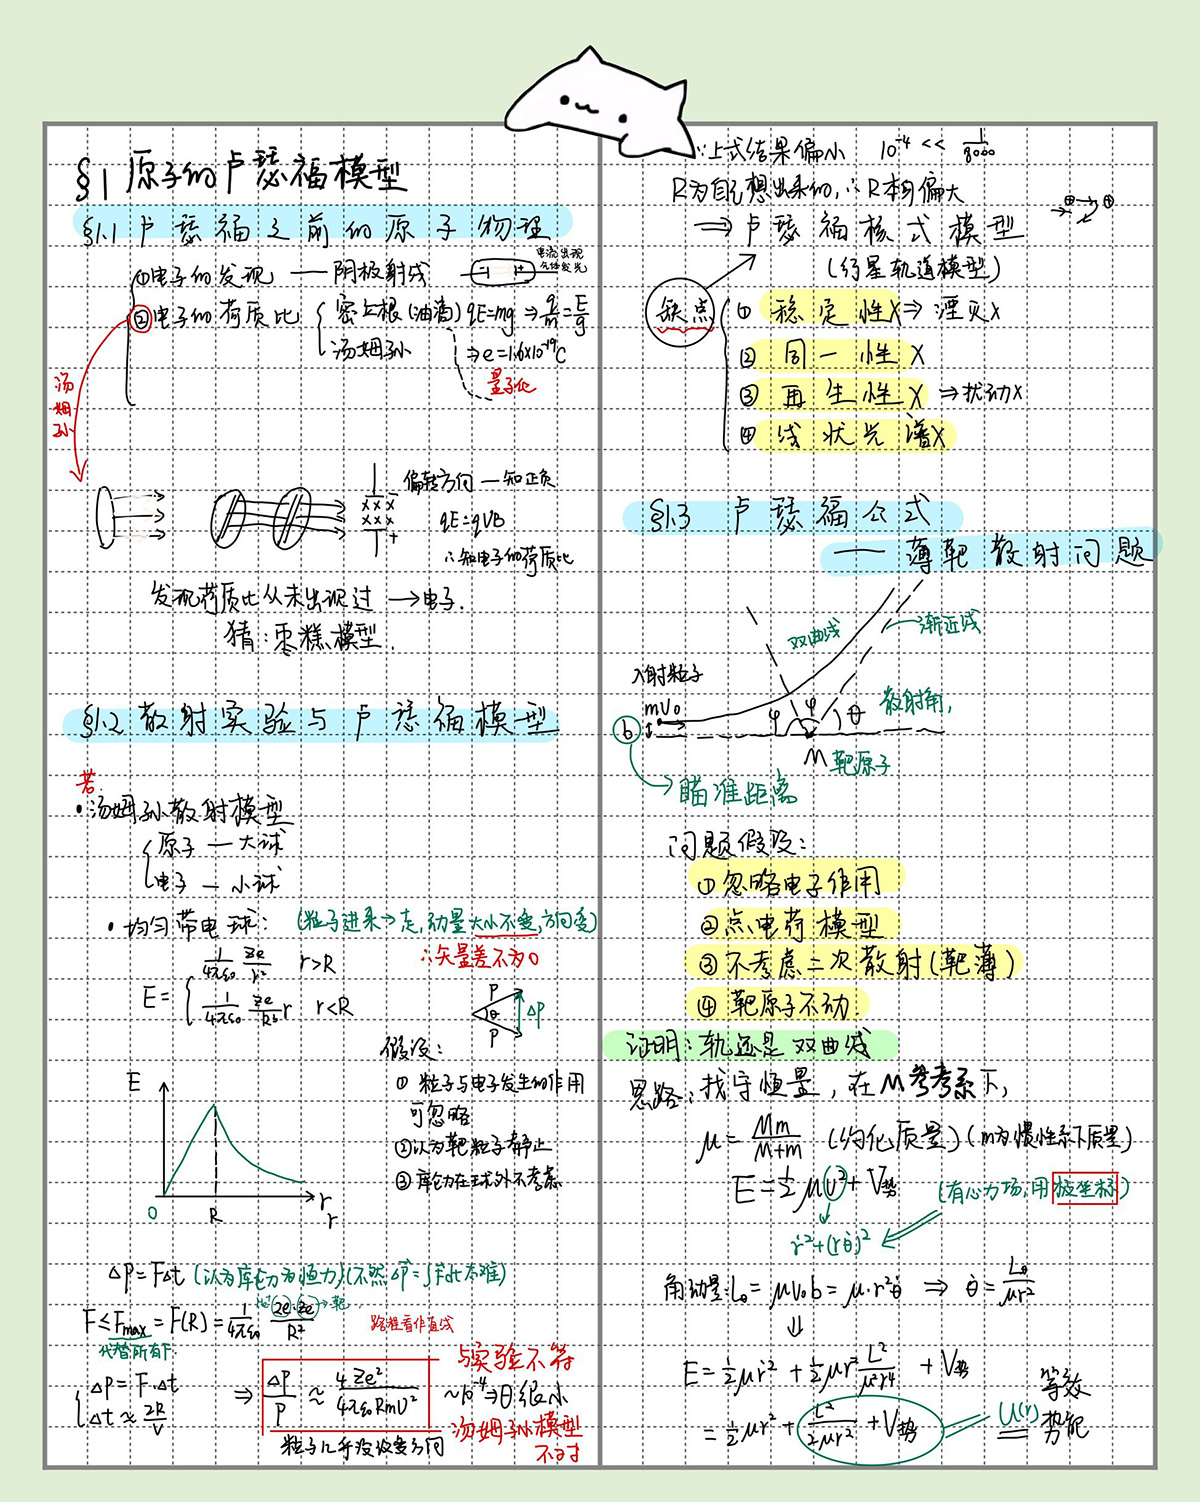 §1 原子的卢瑟福模型
§1.1 卢瑟福之前的原子物理
①电子的发现 — 阴极射线
电流出现
气体发光
②电子的荷质比
密立根(油滴) qE=mg ⇒ q/m = E/g
汤姆孙 ⇒ e=1.6×10⁻¹⁹C
量子化
汤姆孙
偏转方向 — 知正负
qE=qVB
∴知电子的荷质比
发现荷质比从未出现过 → 电子.
猜: 枣糕模型.
§1.2 散射实验与卢瑟福模型
若
·汤姆孙散射模型
原子 — 大球
电子 — 小球
·均匀带电球:
(粒子进来→走,动量大小不变,方向变)
∴矢量差不为0
E = { 1/4πε₀ Ze/r² r>R
1/4πε₀ Ze/R³ r r<R
P
θ
P
ΔP
假设:
① 粒子与电子发生的作用
可忽略
②认为靶粒子静止
③ 库仑力在球外不考虑
E
0
R
r
r
ΔP = FΔt (认为库仑力为恒力)(不然ΔP=∫Fdt太难)
F ≤ Fmax = F(R) = 1/4πε₀ 2e·Ze/R²
→ 靶
代替所有F
路程看作直线
ΔP = F·Δt
Δt ≈ 2R/V
⇒ ΔP/P ≈ 4Ze²/4πε₀RmU² ~10⁻⁴ ⇒ θ很小
与实验不符
汤姆孙模型
不对
粒子几乎没改变方向
∵上式结果偏小 10⁻⁴ << 1/8000
R为自己想出来的, ∴R相偏大
⇒ 卢瑟福核式模型
(行星轨道模型)
缺点
① 稳定性X ⇒ 湮灭X
② 同一性 X
③ 再生性X ⇒ 扰动X
④ 线状光谱X
§1.3 卢瑟福公式
— 薄靶散射问题
双曲线
渐近线
入射粒子
mV₀
b
φ
φ
θ
散射角,
M 靶原子
瞄准距离
问题假设:
①忽略电子作用
②点电荷模型
③不考虑二次散射(靶薄)
④靶原子不动.
证明: 轨迹是双曲线
思路: 找守恒量, 在M参考系下,
μ = Mm/M+m (约化质量)(m为惯性系下质量)
E = ½μv² + V势
(有心力场,用极坐标)
ṙ²+(rθ̇)²
角动量: Lθ = μv₀b = μ·r²θ̇ ⇒ θ̇ = Lθ/μr²
⇓
E = ½μṙ² + ½μr² L²/μ²r⁴ + V势
= ½μṙ² + L²/2μr² + V势
U(r)
等效
势能